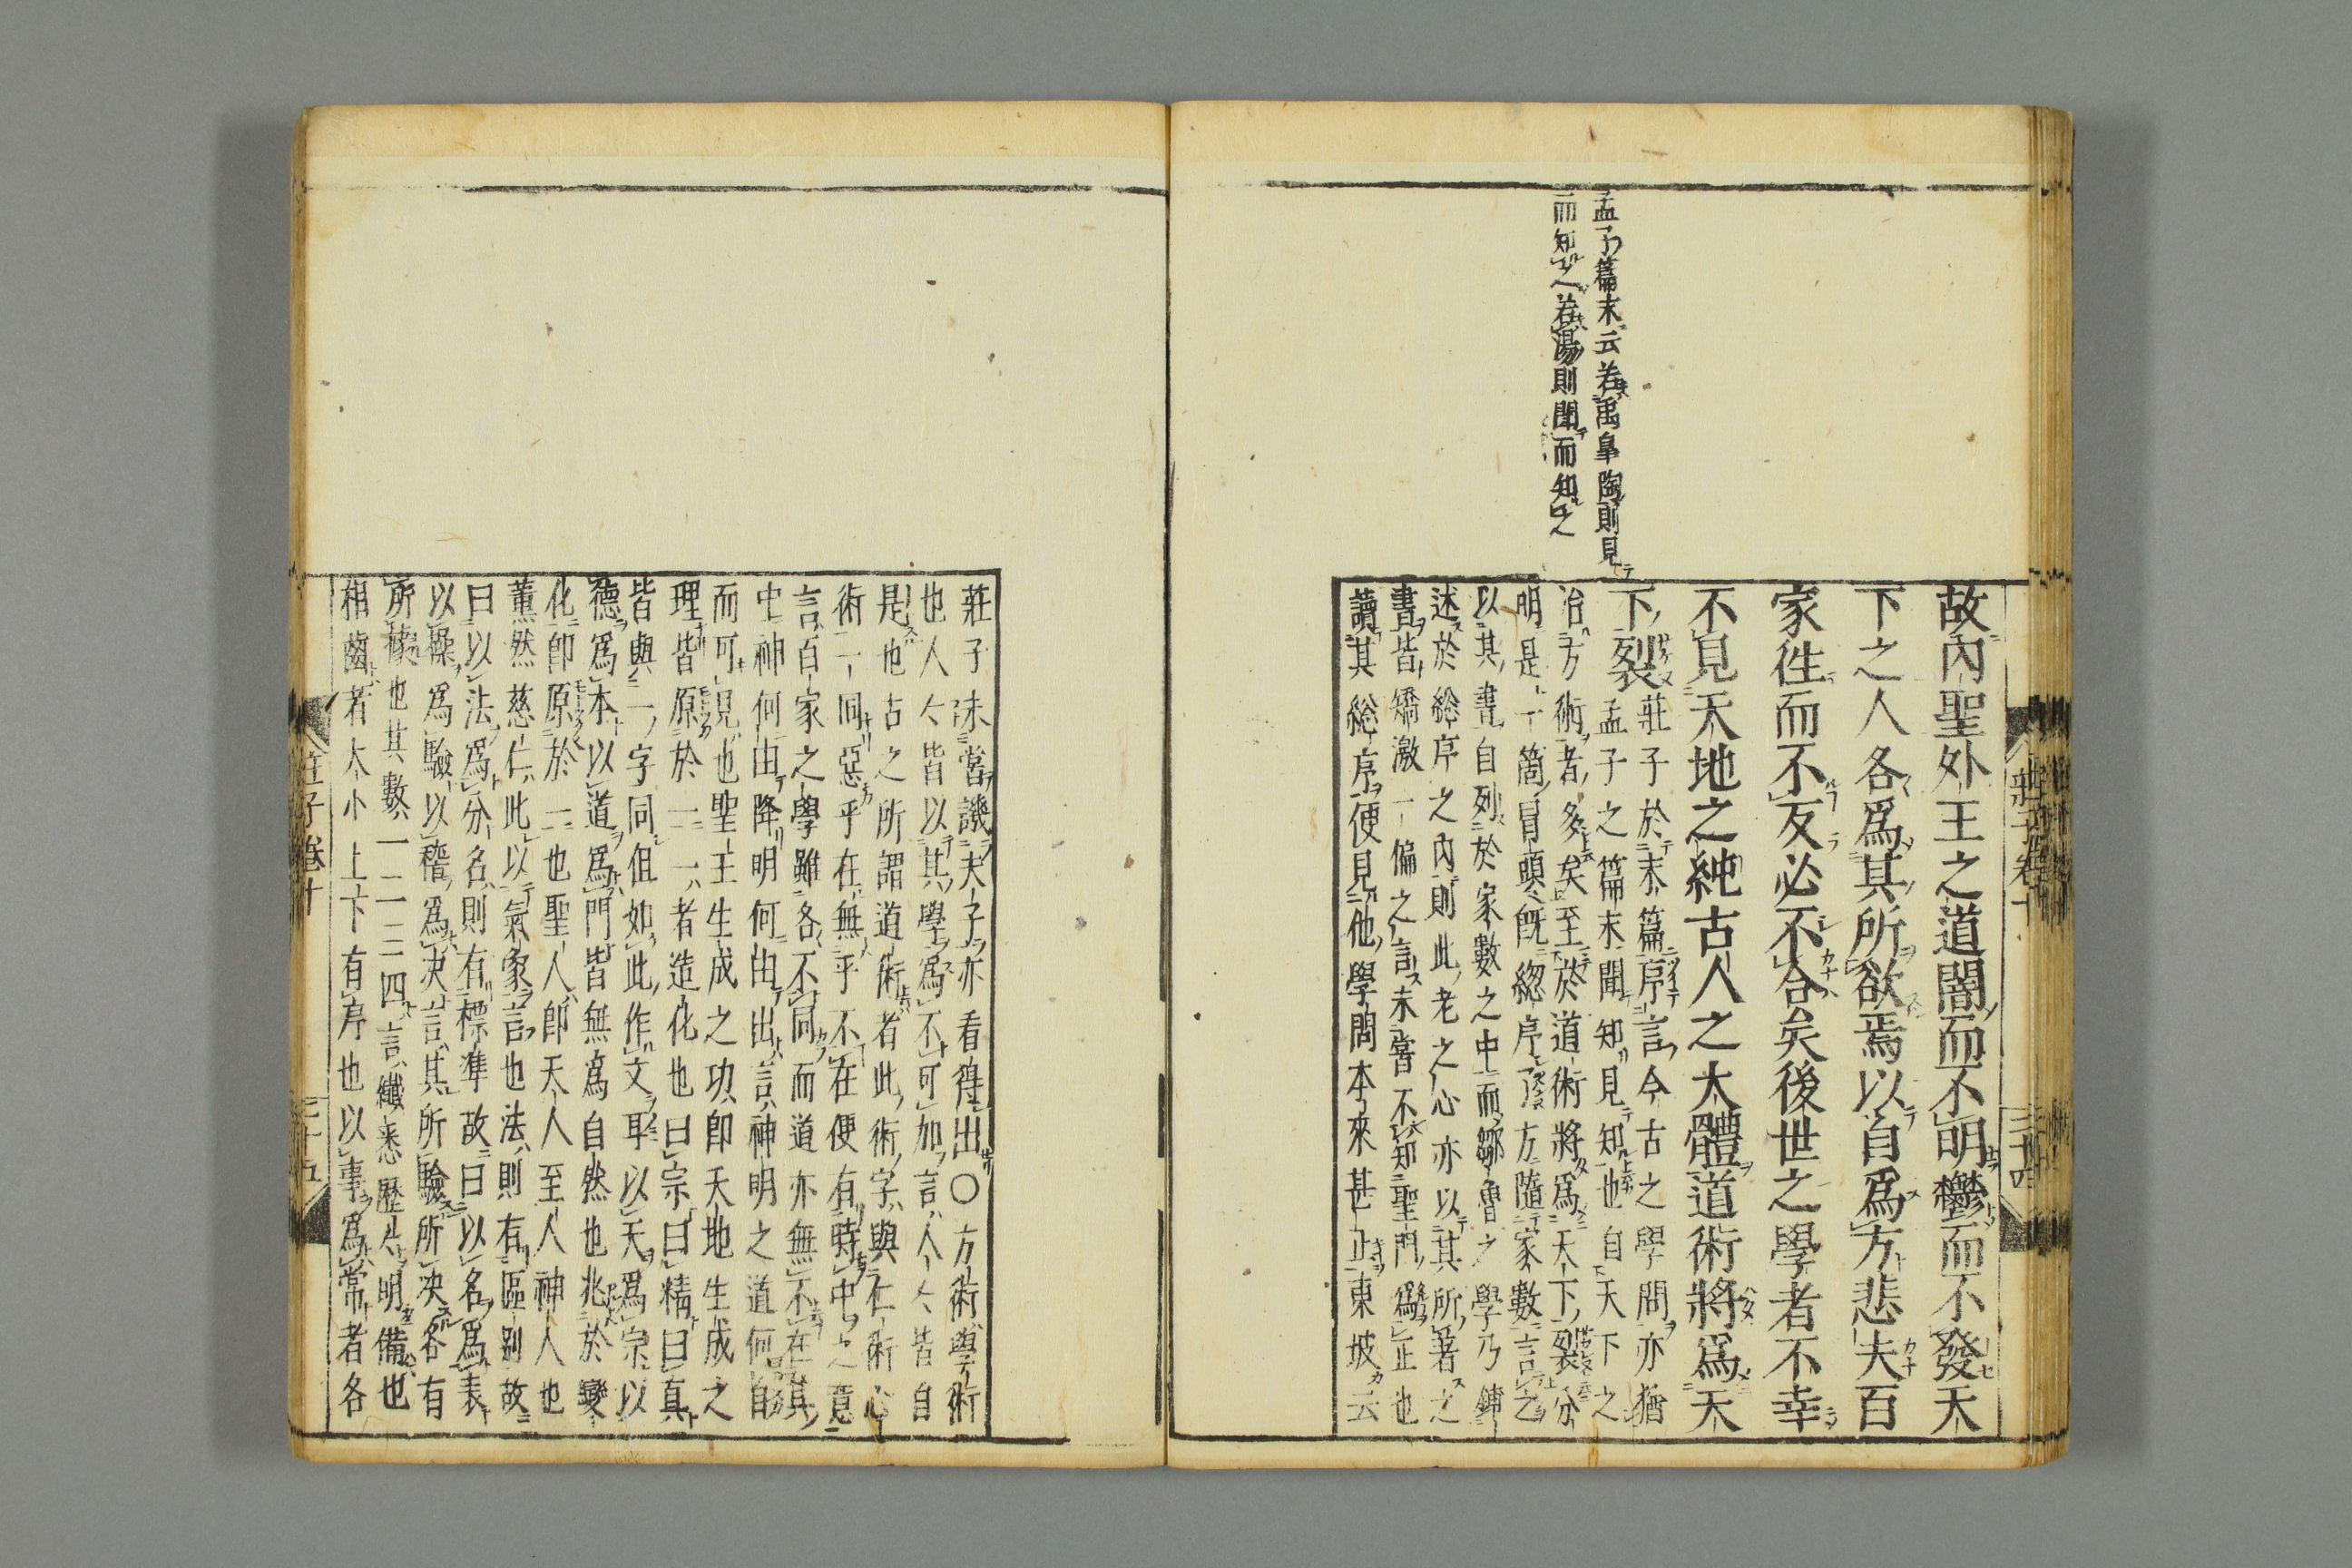 孟子篇末云若禹皐陶則見
而知之若湯則聞而知之
莊子卷十
三十四
故內聖外王之道闇而不明鬱而不發天
下之人各爲其所欲焉以自爲方悲夫百
家徃而不反必不合矣後世之學者不幸
不見天地之純古人之大體道術將爲天
下裂
莊子於末篇序言今古之學問亦猶
孟子之篇末聞知見知也自天下之
治方術者多矣至於道術將爲天下裂分
明是一箇冒頭旣總序了方隨家數言之
以其書自列於家數之中而鄒魯之學乃鋪
述於総序之內則此老之心亦以其所著之
書皆矯激一偏之言未嘗不知聖門爲正也
讀其総序便見他學問本來甚正東坡云
莊子未嘗譏夫子亦看得出○方術學術
也人人皆以其學爲不可加言人人皆自
是也古之所謂道術者此術字與仁術心
術一同惡乎在無乎不在便有時中之意
言百家之學雖各不同而道亦無不在其
中神何由降明何由出言神明之道何自
而可見也聖王生成之功卽天地生成之
理皆原於一一者造化也曰宗曰精曰真
皆與一字同但如此作文耳以天爲宗以
德爲本以道爲門皆無爲自然也兆於變
化卽原於一也聖人卽天人至人神人也
薰然慈仁此以氣象言也法則有區別故
曰以法爲分名則有標準故曰以名爲表
以操爲驗以稽爲决言其所驗所决各有
所據也其數一二三四言纖悉歷歷明備也
相齒者大小上下有序也以事爲常者各
莊子卷十
三十五